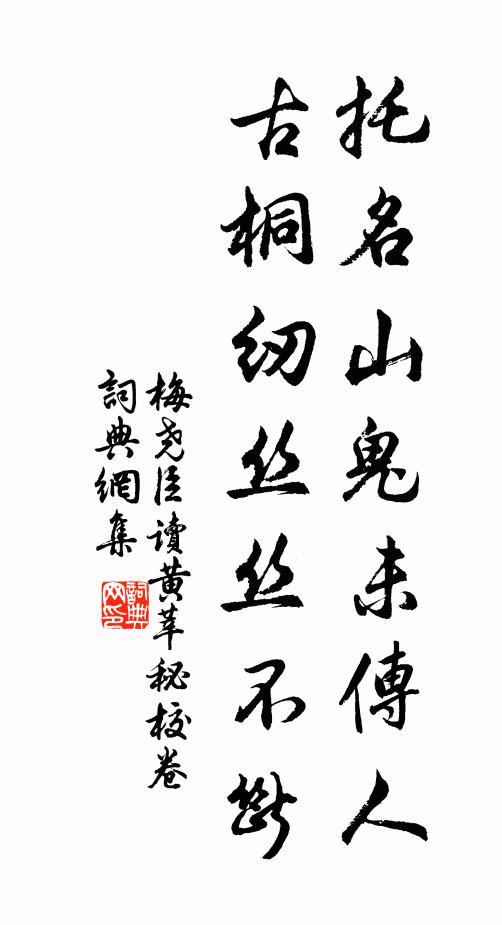 托名山鬼未傳人
古桐纫丝丝不斷
梅尧臣讀黃莘秘校卷
詞典網集
詞典网印